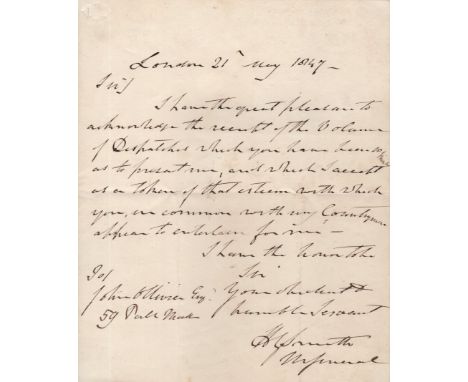 London 21st May 1847 —
Sir/
I have the great pleasure to
acknowledge the receipt of the Volume
of Despatches which you have been so
as to present me, and which I accept
as a token of that esteem with which
you, in common with my Countrymen
appear to entertain for me —
I have the honor to be
Sir
To/
John Ollivier Esq
59 Pall Mall
Your obedient &
humble Servant
HG Smith
M General